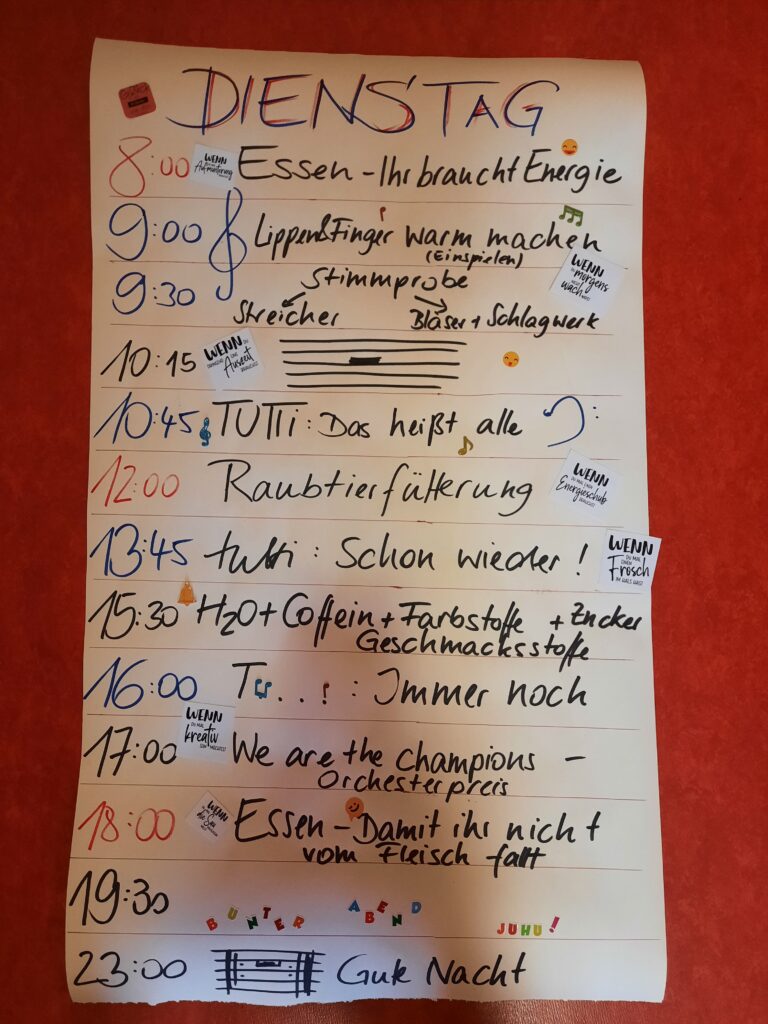 DIENSTAG
8:00 WENN Aufmunterung Essen - Ihr braucht Energie
9:00 Lippen & Finger warm machen
(Einspielen)
9:30 Stimmprobe
Streicher Bläser + Schlagwerk
WENN
morgens
wach
10:15 WENN DU
EINE
Auszeit
10:45 TUTTI: Das heißt alle
12:00 Raubtierfütterung
WENN
DU MAL EINEN
Energieschub
13:45 tutti: Schon wieder!
WENN
DU MAL
EINEN
Frosch
IM HALS HAST
15:30 H2O + Coffein + Farbstoffe + Zucker
Geschmacksstoffe
16:00 T...: Immer noch
WENN
DU MAL
kreativ
17:00 We are the champions -
Orchesterpreis
18:00 WENN Essen - Damit ihr nicht
vom Fleisch fallt
19:30 BUNTER ABEND JUHU!
23:00 Gute Nacht